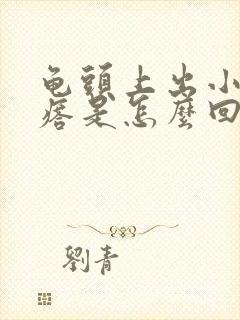 龟頭上出小
痞是怎麼回
劉青